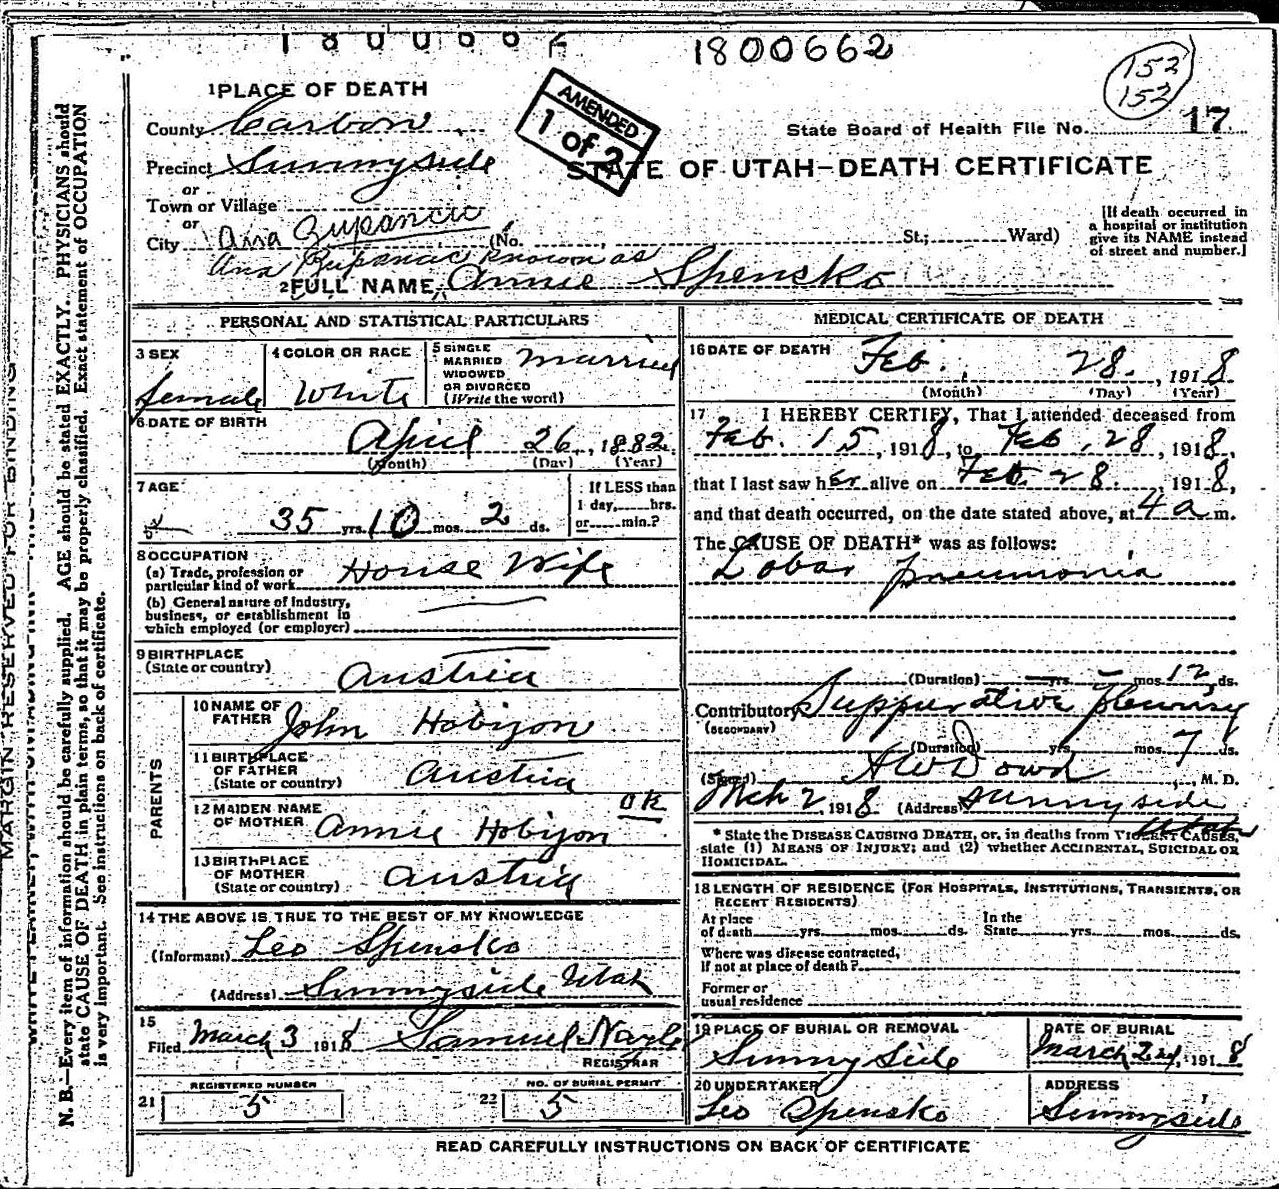 1800662
1800662
152
152
AMENDED
1 of 2
State Board of Health File No. 17
STATE OF UTAH—DEATH CERTIFICATE
1 PLACE OF DEATH
County Carbon
Precinct Sunnyside
or
Town or Village
or
City Ana Zupancic (No. St.; Ward)
[If death occurred in
a hospital or institution
give its NAME instead
of street and number.]
Ana known as
2 FULL NAME Annie Spensko
PERSONAL AND STATISTICAL PARTICULARS
3 SEX
female
4 COLOR OR RACE
White
5 SINGLE
MARRIED
WIDOWED
OR DIVORCED
(Write the word)
Married
6 DATE OF BIRTH
April 26, 1882
(Month) (Day) (Year)
7 AGE
35 yrs. 10 mos. 2 ds.
If LESS than
1 day, hrs.
or min.?
8 OCCUPATION
(a) Trade, profession or
particular kind of work House Wife
(b) General nature of industry,
business, or establishment in
which employed (or employer)
9 BIRTHPLACE
(State or country) Austria
PARENTS
10 NAME OF
FATHER John Hobijon
11 BIRTHPLACE
OF FATHER
(State or country) Austria
12 MAIDEN NAME
OF MOTHER Annie Hobijon OK
13 BIRTHPLACE
OF MOTHER
(State or country) Austria
14 THE ABOVE IS TRUE TO THE BEST OF MY KNOWLEDGE
(Informant) Leo Spensko
(Address) Sunnyside Utah
15
Filed March 3 1918 Samuel Nayle
REGISTRAR
REGISTERED NUMBER
21 5
NO. OF BURIAL PERMIT
22 5
MEDICAL CERTIFICATE OF DEATH
16 DATE OF DEATH
Feb. 28, 1918
(Month) (Day) (Year)
17 I HEREBY CERTIFY, That I attended deceased from
Feb. 15, 1918, to Feb, 28, 1918,
that I last saw her alive on Feb. 28, 1918,
and that death occurred, on the date stated above, at 4 a m.
The CAUSE OF DEATH* was as follows:
Lobar pneumonia
(Duration) yrs. mos. 12 ds.
Contributory Suppurative pleurisy
(SECONDARY)
(Duration) yrs. mos. 7 ds.
(Signed) A W Dowd, M. D.
Mch 2 1918 (Address) Sunnyside
Utah
* State the DISEASE CAUSING DEATH, or, in deaths from VIOLENT CAUSES,
state (1) MEANS OF INJURY; and (2) whether ACCIDENTAL, SUICIDAL OR
HOMICIDAL.
18 LENGTH OF RESIDENCE (FOR HOSPITALS, INSTITUTIONS, TRANSIENTS, OR
RECENT RESIDENTS)
At place
of death yrs. mos. ds.
In the
State yrs. mos. ds.
Where was disease contracted,
if not at place of death?
Former or
usual residence
19 PLACE OF BURIAL OR REMOVAL
Sunny Side
DATE OF BURIAL
March 2nd, 1918
20 UNDERTAKER
Leo Spensko
ADDRESS
Sunnyside
READ CAREFULLY INSTRUCTIONS ON BACK OF CERTIFICATE
MARGIN RESERVED FOR BINDING
N. B.—Every item of information should be carefully supplied. AGE should be stated EXACTLY. PHYSICIANS should
state CAUSE OF DEATH in plain terms, so that it may be properly classified. Exact statement of OCCUPATION
is very important. See instructions on back of certificate.